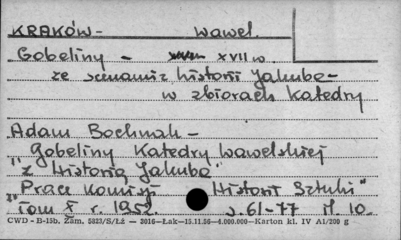 KRAKÓW - Wawel.
Gobeliny - XVII w
ze scenami z historii Jakuba -
w zbiorach Katedry
Adam Bochnak -
"Gobeliny Katedry Wawelskiej
z Historią Jakuba"
"Prace Komisji Historii Sztuki"
Tom X r. 1952. s. 61-77 il. 10.
CWD - B-15b. Zam. 5823/S/Łż - 3016 - Łak - 15.11.56 - 4.000.000 - Karton kl. IV A1/200 g